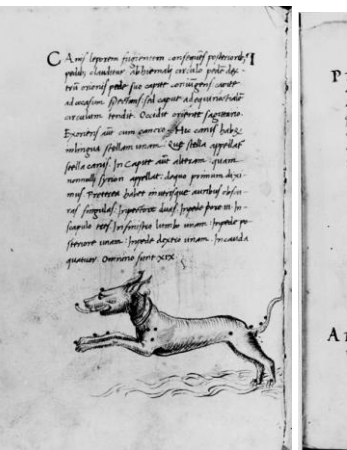 CAnis leporem fugientem consequens posterioribus
pedibus clauditur ab hiemali circulo pede dex-
tro orionis pede suo capite coniungens caput
ad occasum spectans sed caput ad equinoctialē
circulum tendit. Occidit oriente sagittario.
Exoritur aūt cum cancro. Hic canis habet
in lingua stellam unam. Que stella appellat
stella canis. In Capite aūt alteram quam
nonnulli syrion appellat: de quo primum dixi
mus Preterea habet in utrisque auribus obscu-
ras singulas. In pectore duas. In pede
scapulo tres. In sinistro lumbo unam. In pede po
steriore unam. In pede dextro unam. In cauda
quatuor. Omnino sunt XIX
P
A